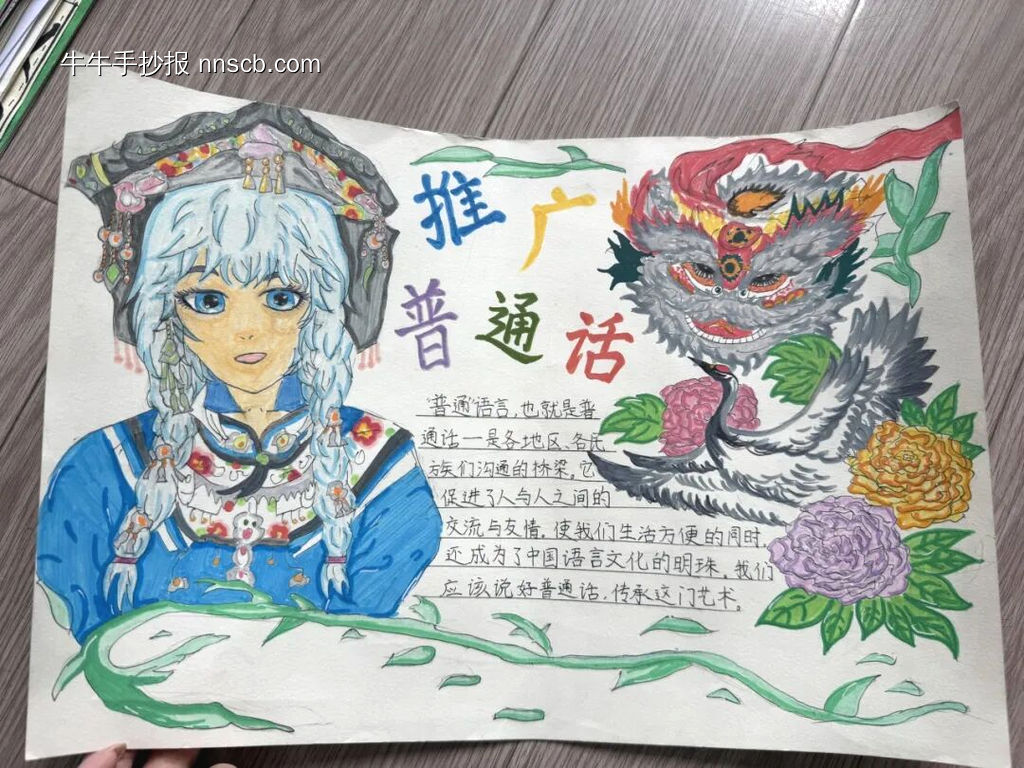 牛牛手抄报 nnscb.com
推广
普通话
"普通"语言,也就是普
通话一是各地区、各民
族们沟通的桥梁。它
促进了人与人之间的
交流与友情。使我们生活方便的同时,
还成为了中国语言文化的明珠。我们
应该说好普通话,传承这门艺术。